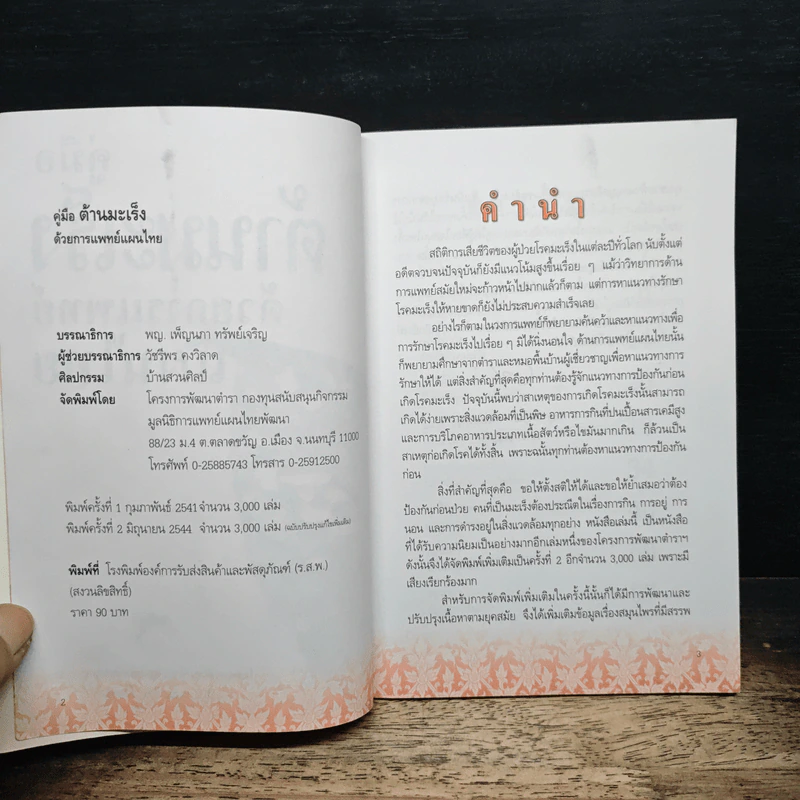 คู่มือ ต้านมะเร็ง
ด้วยการแพทย์แผนไทย
บรรณาธิการ พญ. เพ็ญนภา ทรัพย์เจริญ
ผู้ช่วยบรรณาธิการ วัชรีพร คงวิลาด
ศิลปกรรม บ้านสวนศิลป์
จัดพิมพ์โดย โครงการพัฒนาตำรา กองทุนสนับสนุนกิจกรรม
มูลนิธิการแพทย์แผนไทยพัฒนา
88/23 ม.4 ต.ตลาดขวัญ อ.เมือง จ.นนทบุรี 11000
โทรศัพท์ 0-25885743 โทรสาร 0-25912500
พิมพ์ครั้งที่ 1 กุมภาพันธ์ 2541 จำนวน 3,000 เล่ม
พิมพ์ครั้งที่ 2 มิถุนายน 2544 จำนวน 3,000 เล่ม (ฉบับปรับปรุงแก้ไขเพิ่มเติม)
พิมพ์ที่ โรงพิมพ์องค์การรับส่งสินค้าและพัสดุภัณฑ์ (ร.ส.พ.)
(สงวนลิขสิทธิ์)
ราคา 90 บาท
2
คำนำ
สถิติการเสียชีวิตของผู้ป่วยโรคมะเร็งในแต่ละปีทั่วโลก นับตั้งแต่
อดีตจวบจนปัจจุบันก็ยังมีแนวโน้มสูงขึ้นเรื่อย ๆ แม้ว่าวิทยาการด้าน
การแพทย์สมัยใหม่จะก้าวหน้าไปมากแล้วก็ตาม แต่การหาแนวทางรักษา
โรคมะเร็งให้หายขาดก็ยังไม่ประสบความสำเร็จเลย
อย่างไรก็ตามในวงการแพทย์ก็พยายามค้นคว้าและหาแนวทางเพื่อ
การรักษาโรคมะเร็งไปเรื่อย ๆ มิได้นิ่งนอนใจ ด้านการแพทย์แผนไทยนั้น
ก็พยายามศึกษาจากตำราและหมอพื้นบ้านผู้เชี่ยวชาญเพื่อหาแนวทางการ
รักษาให้ได้ แต่สิ่งสำคัญที่สุดคือทุกท่านต้องรู้จักแนวทางการป้องกันก่อน
เกิดโรคมะเร็ง ปัจจุบันนี้พบว่าสาเหตุของการเกิดโรคมะเร็งนั้นสามารถ
เกิดได้ง่ายเพราะสิ่งแวดล้อมที่เป็นพิษ อาหารการกินที่ปนเปื้อนสารเคมีสูง
และการบริโภคอาหารประเภทเนื้อสัตว์หรือไขมันมากเกิน ก็ล้วนเป็น
สาเหตุก่อเกิดโรคได้ทั้งสิ้น เพราะฉะนั้นทุกท่านต้องหาแนวทางการป้องกัน
ก่อน
สิ่งที่สำคัญที่สุดคือ ขอให้ตั้งสติให้ได้และขอให้ย้ำเสมอว่าต้อง
ป้องกันก่อนป่วย คนที่เป็นมะเร็งต้องประณีตในเรื่องการกิน การอยู่ การ
นอน และการดำรงอยู่ในสิ่งแวดล้อมทุกอย่าง หนังสือเล่มนี้ เป็นหนังสือ
ที่ได้รับความนิยมเป็นอย่างมากอีกเล่มหนึ่งของโครงการพัฒนาตำราฯ
ดังนั้นจึงได้จัดพิมพ์เพิ่มเป็นครั้งที่ 2 อีกจำนวน 3,000 เล่ม เพราะมี
เสียงเรียกร้องมาก
สำหรับการจัดพิมพ์เพิ่มเติมในครั้งนี้นั้นก็ได้มีการพัฒนาและ
ปรับปรุงเนื้อหาตามยุคสมัย จึงได้เพิ่มเติมข้อมูลเรื่องสมุนไพรที่มีสรรพ
3